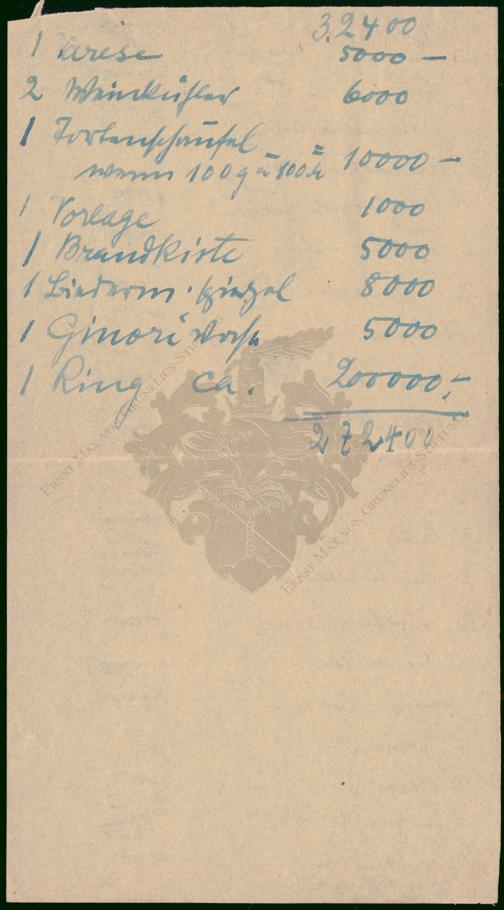 32400
1 Varese 5000 —
2 Weinkühler 6000
1 Tortenschaufel
wenn 100 g = 100 10000 —
1 Vorlage 1000
1 Brandkiste 5000
1 Biederm. spiegel 8000
1 Ginori 5000
1 Ring ca. 200000,-
272400
ERNST MAX VON GRUNELIUS-STIFTUNG
ERNST MAX VON GRUNELIUS-STIFTUNG